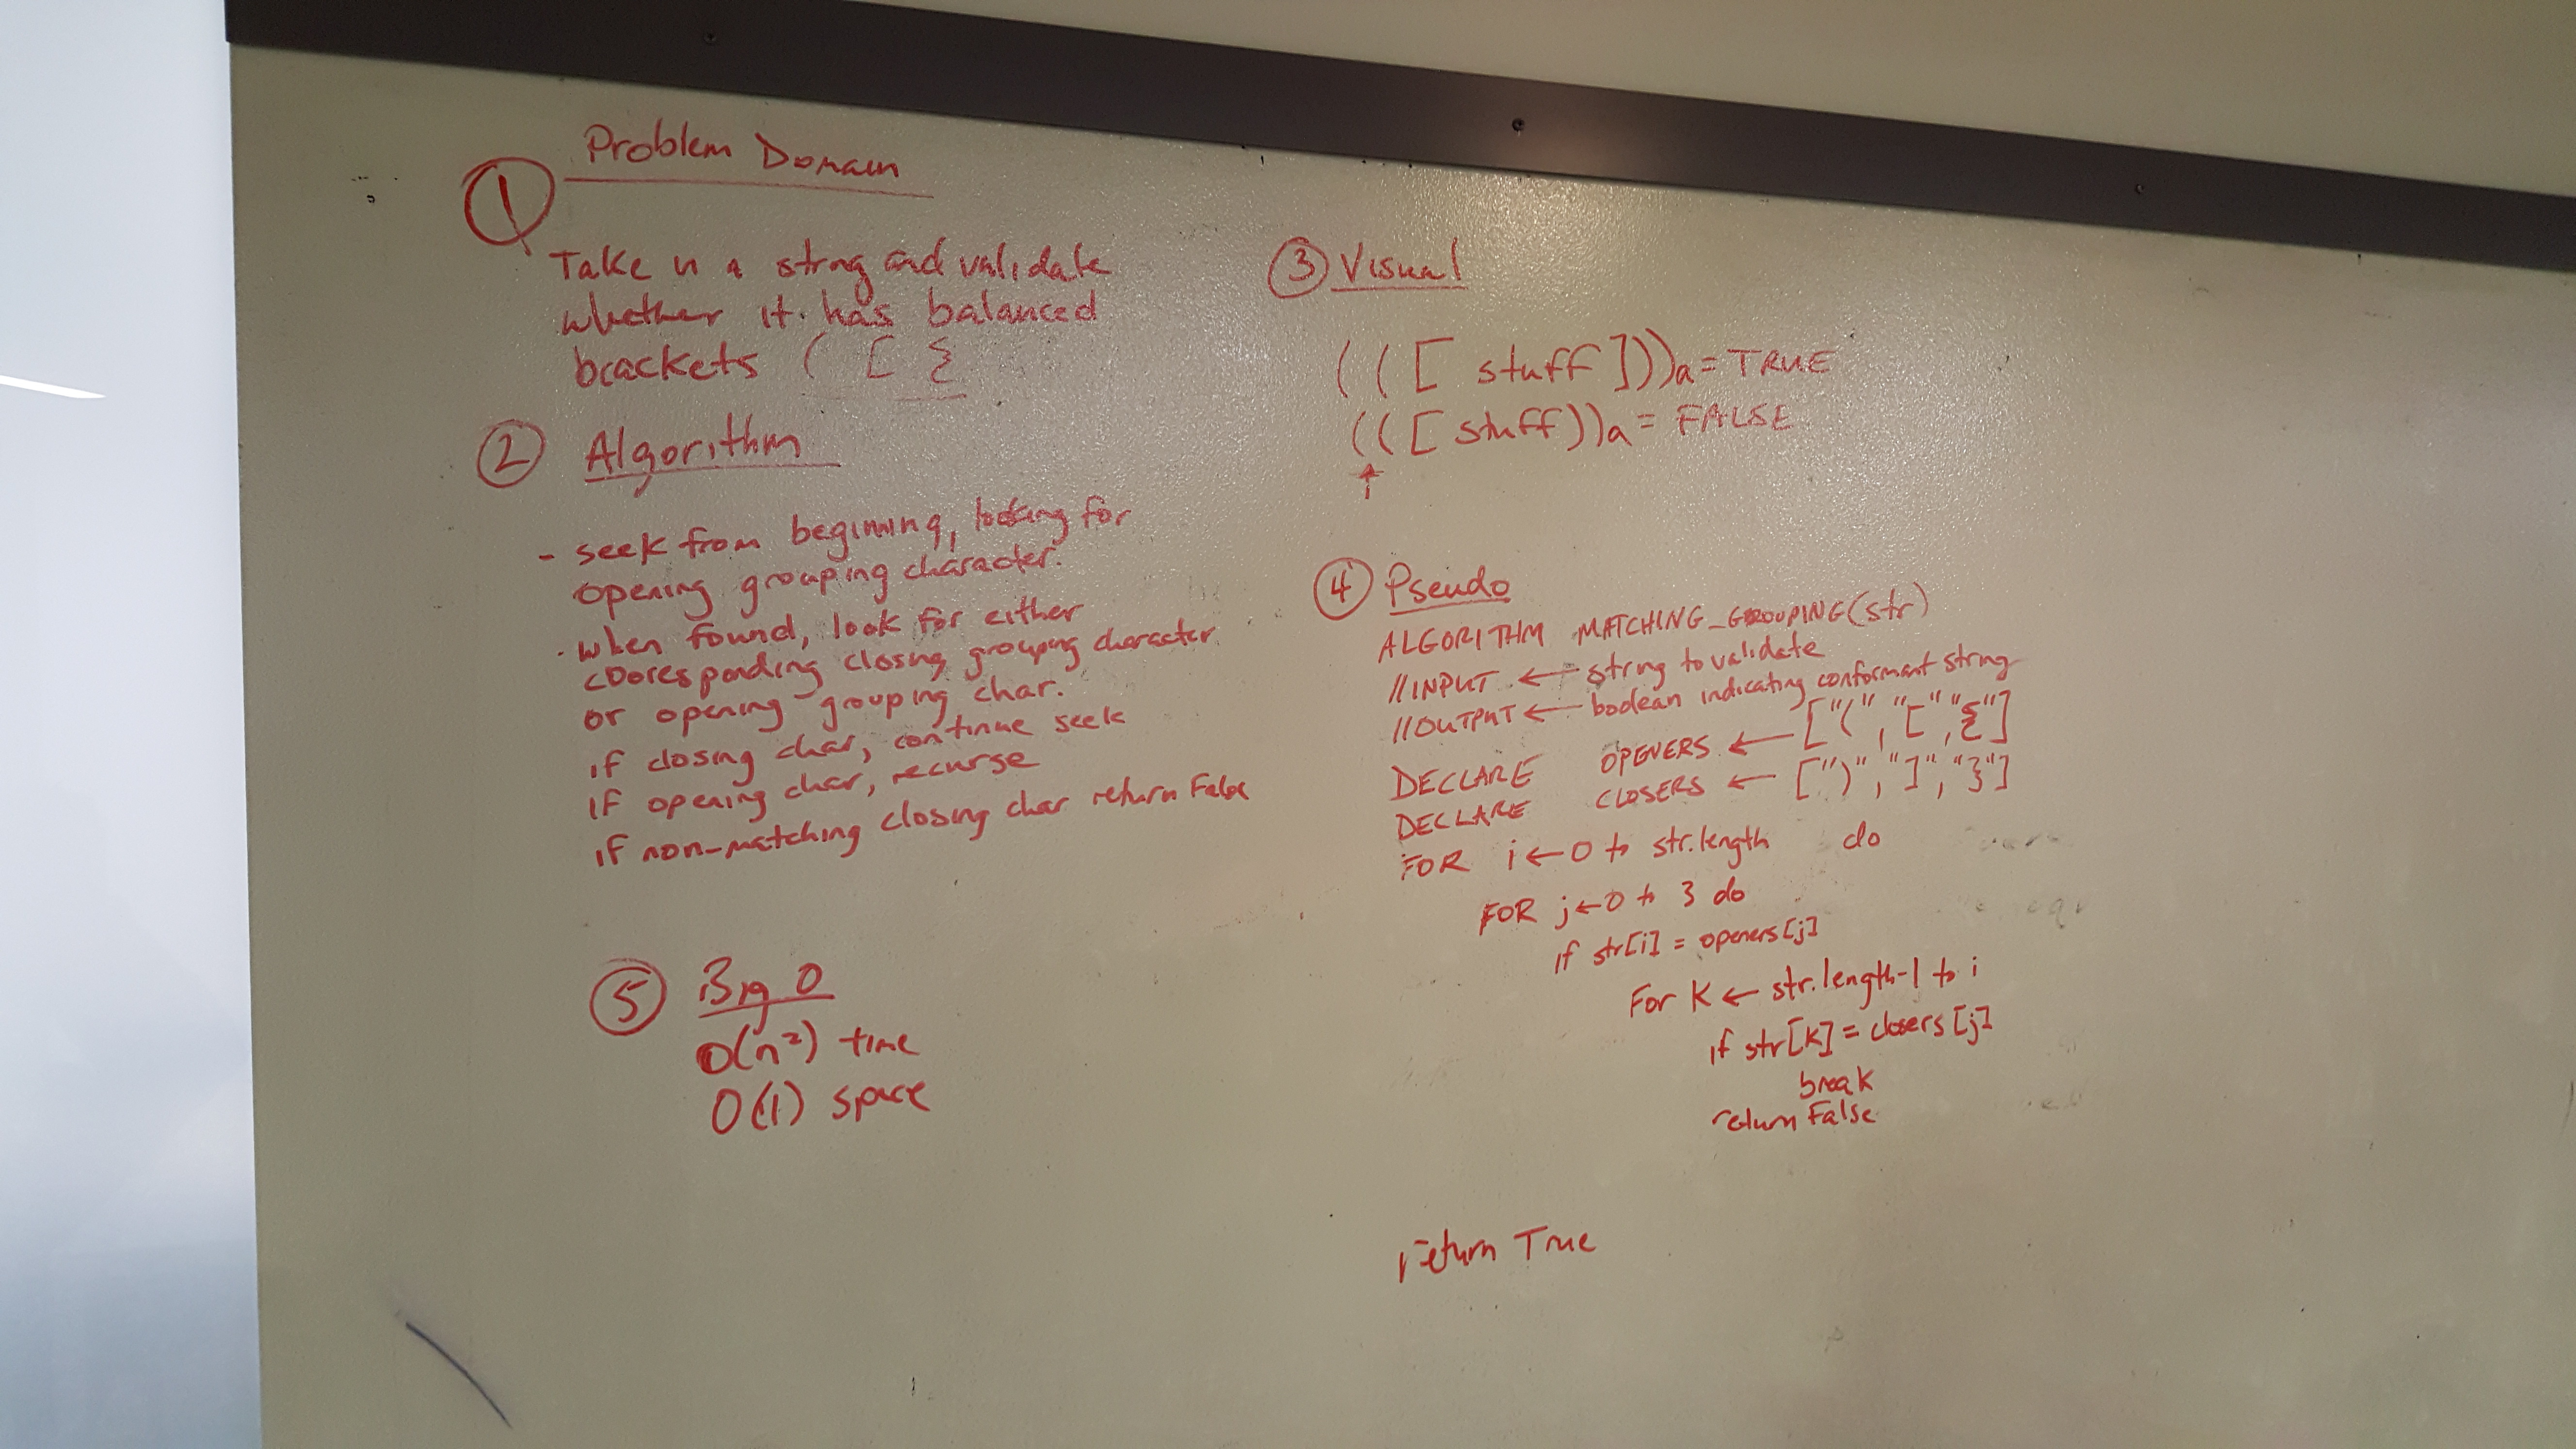 ① Problem Domain
Take in a string and validate
whether it has balanced
brackets ( [ {
② Algorithm
- seek from beginning, looking for
opening grouping character.
. when found, look for either
cooresponding closing grouping character
or opening grouping char.
if closing char, continue seek
if opening char, recurse
if non-matching closing char return False
⑤ Big O
O(n²) time
O(1) space
③ Visual
(([ stuff ]))a = TRUE
(([ stuff))a = FALSE
↑
④ Pseudo
ALGORITHM MATCHING_GROUPING(str)
//INPUT ← string to validate
//OUTPUT ← boolean indicating conformant string
DECLARE OPENERS ← ["(", "[", "{"]
DECLARE CLOSERS ← [")", "]", "}"]
FOR i ← 0 to str.length do
FOR j ← 0 to 3 do
if str[i] = openers[j]
For K ← str.length-1 to i
if str[k] = closers[j]
break
return False
return True